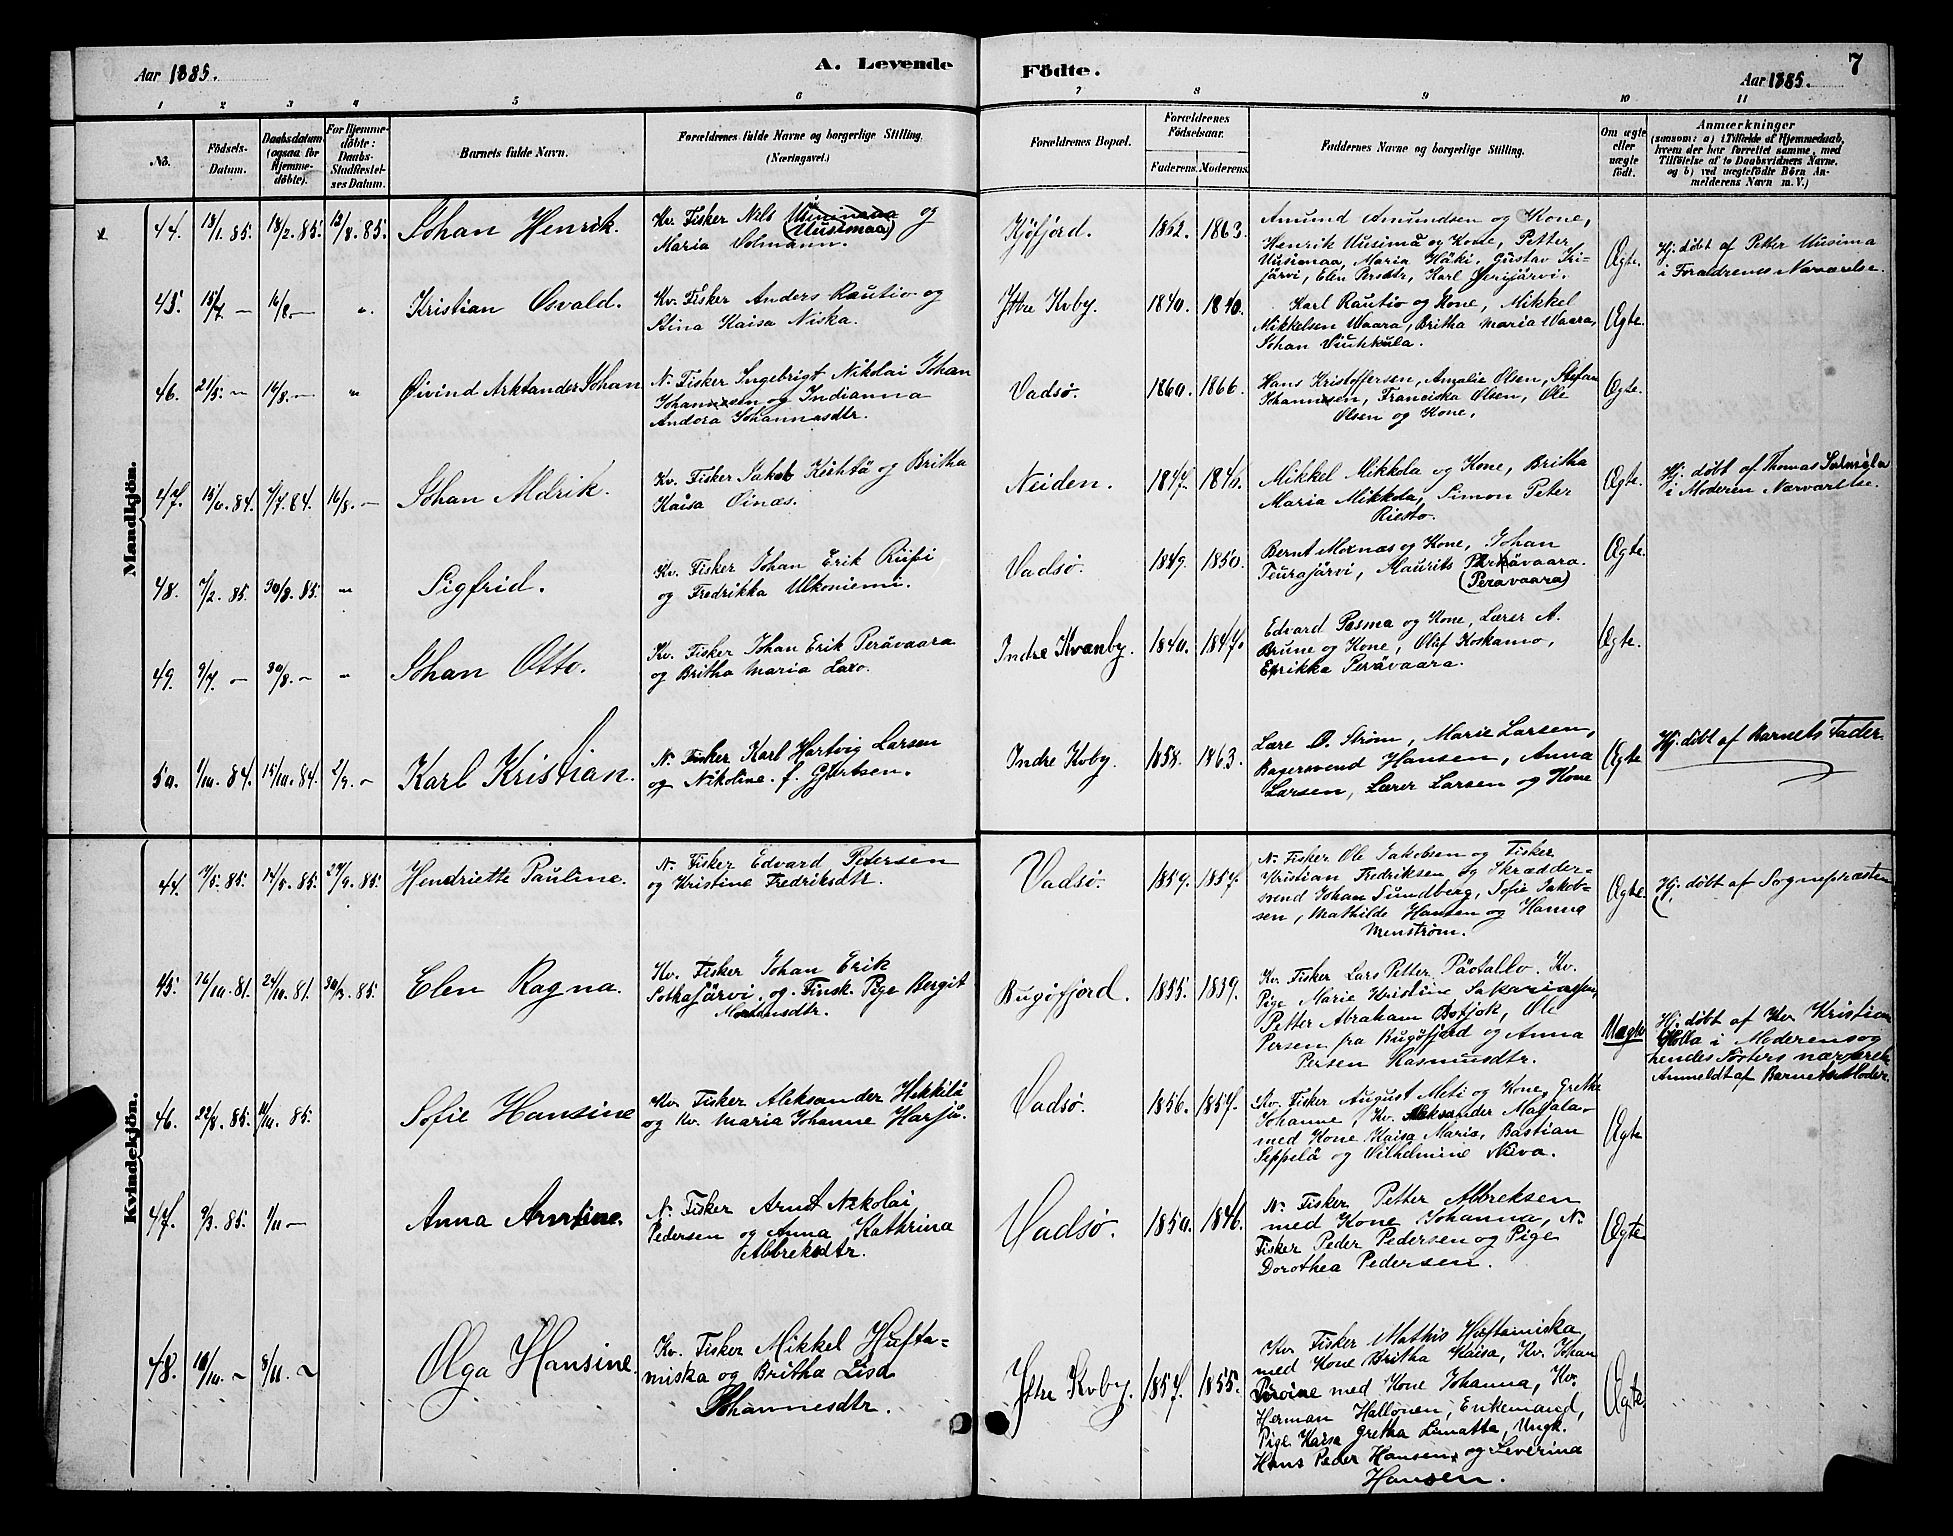 Aar 1885.
A. Levende
Födte.
Aar 1885.
7
1 2 3 4 5 6 7 8 9 10 11
No.
Födsels-
Datum.
Daabsdatum
(ogsaa for
Hjemme-
döbte).
For Hjemme-
döbte:
Daabs-
Stadfæstel-
ses Datum.
Barnets fulde Navn.
Forældrenes fulde Navne og borgerlige Stilling.
(Næringsvei.)
Forældrenes Bopæl.
Forældrenes
Födselsaar.
Faderens. Moderens.
Faddernes Navne og borgerlige Stilling.
Om ægte
eller
uægte
födt.
Anmærkninger
(saasom: a) i Tilfælde af Hjemmedaab,
hvem der har forrettet samme, med
Tilföielse af to Daabsvidners Navne.
og b) ved uægtefödte Börn An-
melderens Navn m. V.)
Mandkjön.
44. 13/1. 85. 18/2. 85. 12/8. 85. Johan Henrik.
Kv. Fisker Nels og
(Uusimaa)
Maria Solmann.
Kjøfjord. 1862. 1863.
Amund Amundsen og Kone,
Henrik Uusima og Kone, Petter
Uusimaa, Maria Häki, Gustav Iri-
järvi, Elen Persdtr, Karl Yerijärvi.
Ægte.
Hj. døbt af Petter Uusima
i Forældrenes Nærværelse.
45. 15/7 — 16/8. — " Kristian Osvald.
Kv. Fisker Anders Rautio og
Stina Kaisa Niska.
Ytre Kvby. 1840. 1840.
Karl Rautio og Kone, Mikkel
Mikkelsen Waara, Britha Maria Waara,
Johan Viuhkula.
Ægte.
46. 21/5. — 16/8. — " Øivind Arktander Johan
N. Fisker Ingebrigt Nikolai Johan
Johannesen og Indianna
Andora Johannasdtr.
Vadsø. 1860. 1866.
Hans Kristoffersen, Amalie Olsen, Stefan
Johannesen, Franciska Olsen, Ole
Olsen og Kone.
Ægte.
47. 15/6. 84. 4/7. 84. 16/8. — Johan Aldrik.
Kv. Fisker Jakob Kehtä og Britha
Kaisa Oinas.
Neiden. 1847. 1840.
Mikkel Mikkola og Kone, Britha
Maria Mikkola, Simon Peter
Riesto.
Ægte.
Hj. døbt af Thomas
i Moderen Nærværelse.
48. 7/2. 85. 30/8. 85. " Sigfrid.
Kv. Fisker Johan Erik Riipi
og Fredrikka Ulkoniemi.
Vadsø. 1849. 1850.
Bernt Moxnæs og Kone, Johan
Peurajärvi, Maurits
(Peravaara)
Ægte.
49. 9/7. — 30/8. — " Johan Otto.
Kv. Fisker Johan Erik Perävaara
og Britha Maria Laxo.
Indre Kvænby. 1840. 1847.
Edvard Pasma og Kone, Lærer A.
Brune og Kone, Oluf Koskamo,
Eprikka Perävaara.
Ægte.
50. 1/10. 84. 15/10. 84. 2/9. — Karl Kristian.
N. Fisker Karl Hartvig Larsen
og Nikoline f. Gjertsen.
Indre Kvby. 1858. 1863.
Lare O. Strøm, Marie Larsen,
Bagersvend Hansen, Anna
Larsen, Lærer Larsen og Kone
Ægte
Hj. døbt af Barnets Fader
Kvindekjön.
44. 11/5. 85. 14/5. 85. 27/9. 85. Henriette Pauline.
N. Fisker Edvard Petersen
og Kristine Fredriksdtr.
Vadsø. 1859. 1857.
N. Fisker Ole Jakobsen og Fisker
Kristian Fredriksen, og Skrædder-
svend Johan Sundberg, Sofie Jakob-
sen, Mathilde Hansen og Hanna
Wenstrøm.
Ægte.
Hj. døbt af Sognepræsten
45. 16/10. 81. 24/10. 81. 30/3. 85. Elen Ragna.
Kv. Fisker Johan Erik
Sotkajärvi og Finsk. Pige Bergit
Mortensdtr.
Bugøfjord. 1855. 1839.
Kv. Fisker Lars Petter Päotallo, Kv.
Pige Marie Kristine Sakariassen,
Petter Abraham Bofjok, Ole
Persen fra Bugøfjord og Anna
Persen Rasmusdtr.
Uægte
Hj. døbt af Kv. Kristian
i Moderens og
hendes Søsters nærværelse.
Anmeldt af Barnets Moder.
46. 22/8. 85. 11/10. 85. Sofie Hansine
Kv. Fisker Aleksander Heikkilä
og Kv. Maria Johanne Harju.
Vadsø. 1856. 1857.
Kv. Fisker August Meti og Kone, Grethe
Johanne, Kv. Aleksander Majjala
med Kone Kaisa Maria, Bastian
Seppelä og Vilhelmine Niva.
Ægte
47. 9/3. 85. 1/11 — Anna Arntine.
N. Fisker Arnt Nikolai
Pedersen og Anna Kathrina
Abbreksdtr.
Vadsø. 1850. 1846.
N. Fisker Petter Abbreksen
med Kone Johanna, N.
Fisker Peder Pedersen og Pige
Dorothea Pedersen.
Ægte
48. 10/10. — 8/11. — Olga Hansine.
Kv. Fisker Mikkel Hufta-
miska og Britha Lisa
Johannesdtr.
Ytre Kvby. 1857. 1855.
Kv. Fisker Mathis Huftamiska
med Kone Britha Kaisa, Kv. Johan
med Kone Johanna, Kv.
Herman Hallonen, Enkemand,
Pige Kaisa Gretha Limatta, Ungk.
Hans Peder Hansen, og Severina
Hansen.
Ægte